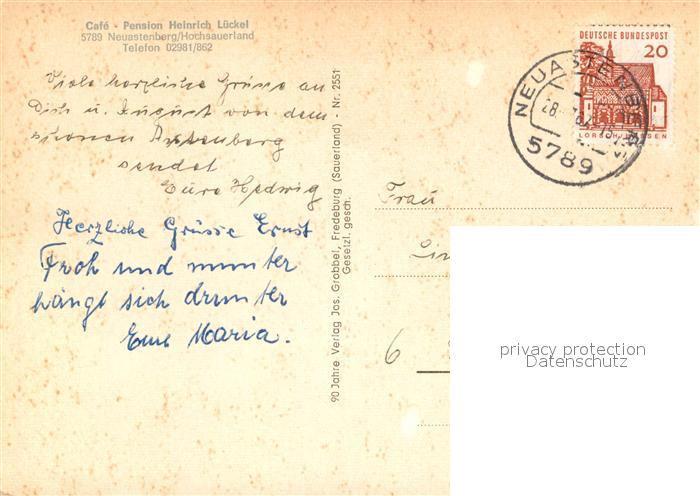 Café - Pension Heinrich Lückel
5789 Neuastenberg/Hochsauerland
Telefon 02981/862
Viele herzliche Grüsse an
Dich u. August von dem
schönen Astenberg
sendet
Eure Hedwig
Herzliche Grüsse Ernst
Froh und munter
hängt sich drunter
Eure Maria.
90 Jahre Verlag Jos. Grobbel, Fredeburg (Sauerland) - Nr. 2551
Gesetzl. gesch.
DEUTSCHE BUNDESPOST
20
LORSCH/HESSEN
NEUASTENBERG
5789
Frau
6
privacy protection
Datenschutz